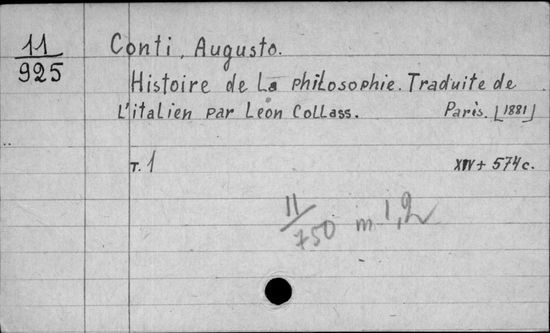 11
925
Conti, Augusto.
Histoire de la philosophie. Traduite de
l'italien par Léon Collass. Paris. [1881]
т. 1 XIV + 574 c.
11
750 m 1,2